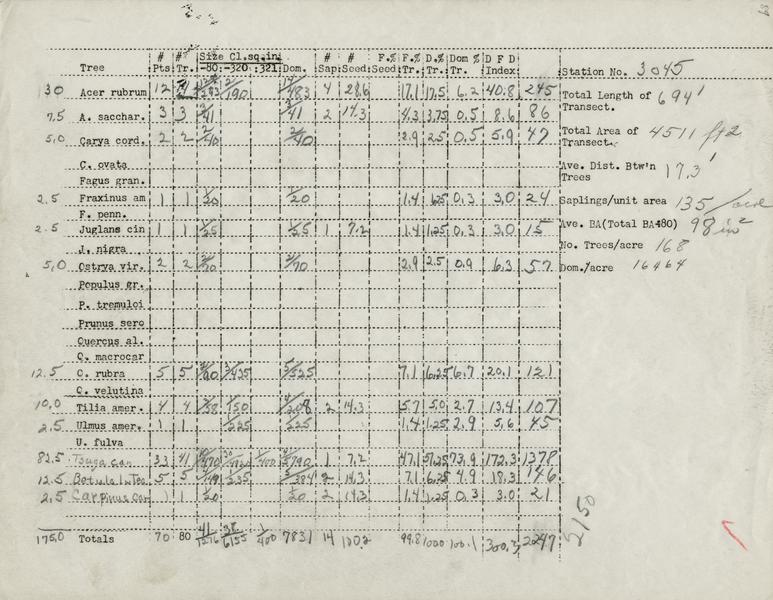 # # Size Cl.sq.in. # # F.% F.% D.% Dom % D F D
Tree Pts Tr. -80: -320 :321 Dom. Sap. Seed. Seed Tr. Tr. Tr. Index
30 Acer rubrum 12 190 4 28.6 17.1 17.5 6.2 40.8 245
7.5 A. sacchar. 3 3 2/41 3/41 2 14.3 4.3 3.75 0.5 8.6 86
5.0 Carya cord. 2 2 2/40 2/40 2.9 2.5 0.5 5.9 47
C. ovata
Fagus gran.
2.5 Fraxinus am 1 1 1/20 1/20 1.4 1.25 0.3 3.0 24
F. penn.
2.5 Juglans cin 1 1 1/25 1/25 1 7.2 1.4 1.25 0.3 3.0 15
J. nigra
5.0 Ostrya vir. 2 2 2/70 2/70 2.9 2.5 0.9 6.3 57
Populus gr.
P. tremuloi
Prunus sero
Quercus al.
Q. macrocar
12.5 Q. rubra 5 5 3/425 5/525 7.1 6.25 6.7 20.1 121
Q. velutina
10.0 Tilia amer. 4 4 3/58 1/150 4/208 2 14.3 5.7 5.0 2.7 13.4 107
2.5 Ulmus amer. 1 1 1/225 1/225 1.4 1.25 2.9 5.6 45
U. fulva
82.5 Tsuga can 33 41 1/400 1 7.2 47.1 51.25 73.9 172.3 1378
12.5 Betula lutea 5 5 4/149 1/235 5/384 2 14.3 7.1 6.25 4.9 18.3 146
2.5 Carpinus Car 1 1 1/20 1/20 2 14.3 1.4 1.25 0.3 3.0 21
175.0 Totals 70 80 41/1276 38/6155 1/400 7831 14 100.2 99.8 100.0 100.1 300.3 2247
Station No. 3045
Total Length of Transect. 694'
Total Area of Transect. 4511 ft2
Ave. Dist. Btw'n Trees 17.3'
Saplings/unit area 135/acre
Ave. BA(Total BA÷80) 98 in2
No. Trees/acre 168
Dom./acre 16464
2150